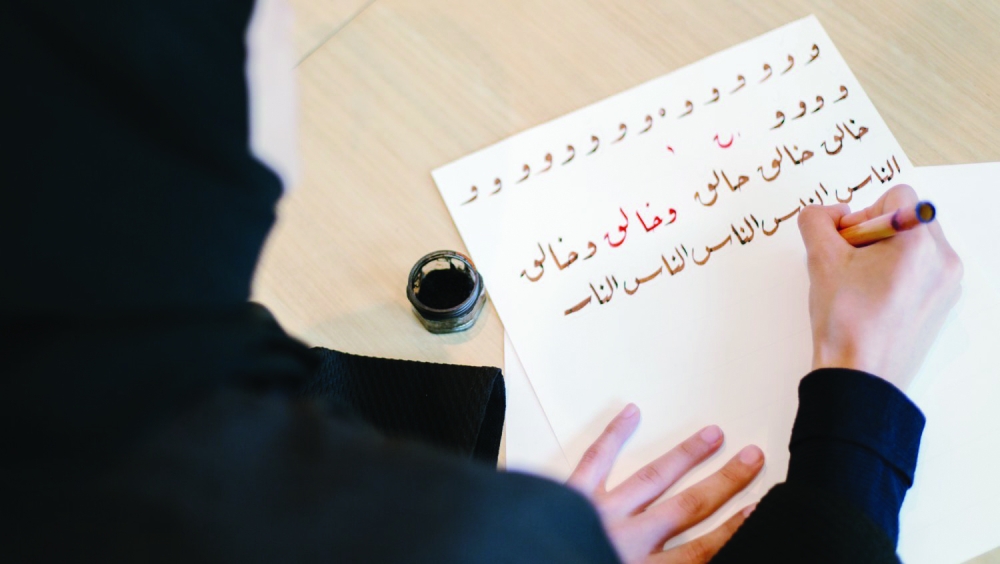 و و و و و و ه و و و و و و و و
و و و و
خالق خالق حالق وخالق وخالق
الناس الناس الناس الناس